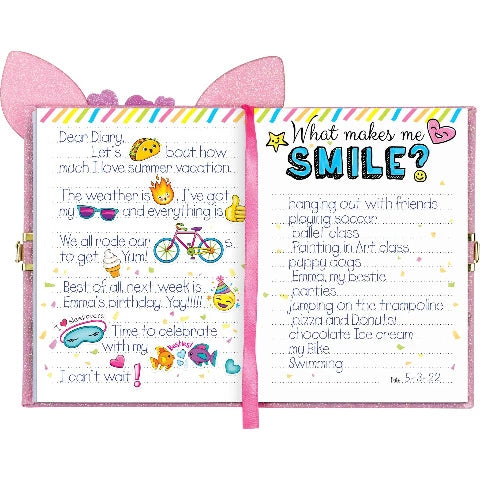 Dear Diary,
Let's bout how
much I love summer vacation.
The weather is . I've got
my and everything is
We all rode our s
to get . Yum!
Best of all, next week is
Emma's birthday. Yay!!!!!
Time to celebrate
with my Besties!
I can't wait!
What makes me
SMILE?
hanging out with friends
playing soccer
ballet class
Painting in Art class
puppy dogs
Emma, my bestie
parties
jumping on the trampoline
pizza and Donuts!
chocolate Ice cream
my Bike
Swimming
Date 5-3-22